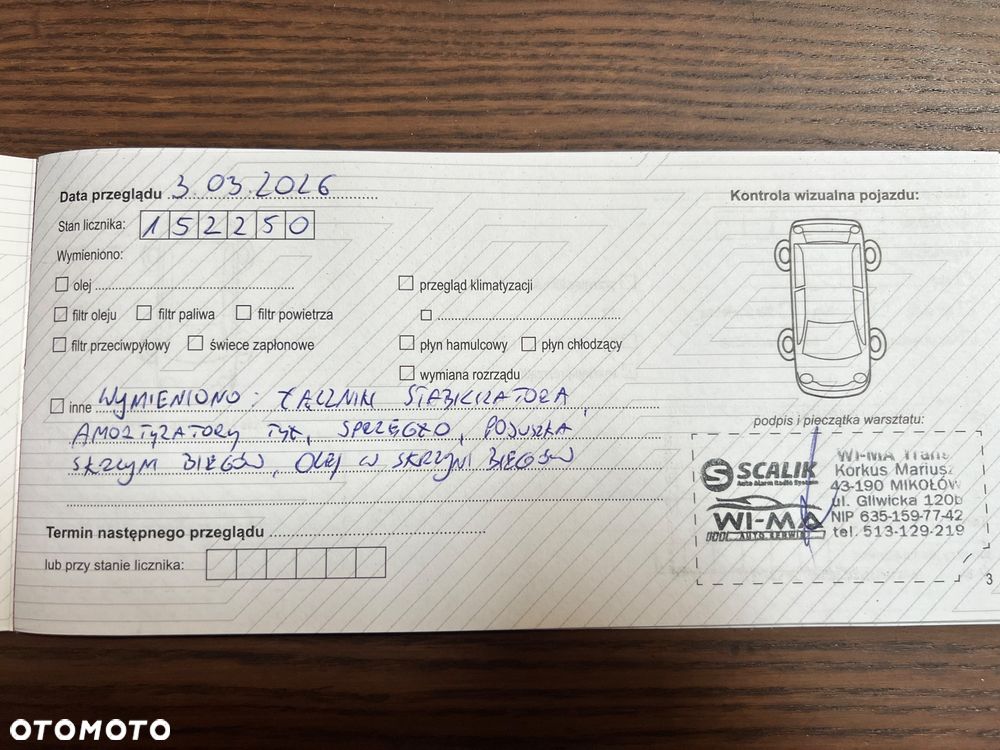 Data przeglądu 3.03.2026
Kontrola wizualna pojazdu:
Stan licznika: 152250
Wymieniono:
olej
przegląd klimatyzacji
filtr oleju filtr paliwa filtr powietrza
filtr przeciwpyłowy świece zapłonowe
płyn hamulcowy płyn chłodzący
wymiana rozrządu
inne WYMIENIONO: ŁĄCZNIKI STABILIZATORA,
AMORTYZATORY TYŁ, SPRZĘGŁO, PODUSZKA
SKRZYNI BIEGÓW, OLEJ W SKRZYNI BIEGÓW
podpis i pieczątka warsztatu:
SCALIK
Auto Alarm Radio System
WI-MA
AUTO SERWIS
WI-MA Trans
Korkus Mariusz
43-190 MIKOŁÓW
ul. Gliwicka 120b
NIP 635-159-77-42
tel. 513-129-219
Termin następnego przeglądu
lub przy stanie licznika:
3
OTOMOTO